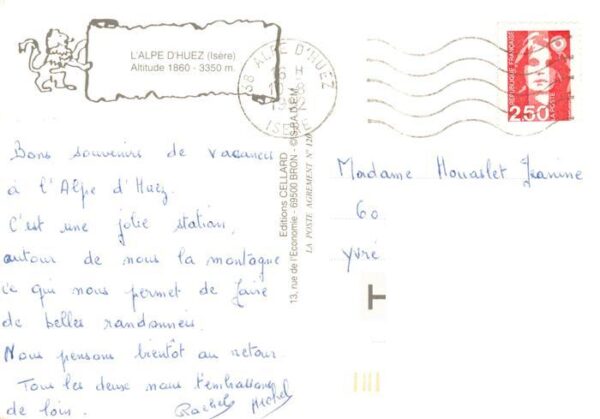 L'ALPE D'HUEZ (Isère)
Altitude 1860 - 3350 m.
38 ALPE D'HUEZ
ISÈRE
RÉPUBLIQUE FRANÇAISE
2,50
LA POSTE
Bons souvenirs de vacances
à l'Alpe d'Huez.
C'est une jolie station,
autour de nous la montagne
ce qui nous permet de faire
de belles randonnées.
Nous pensons bientôt au retour.
Tous les deux nous t'embrassons
de loin.
Rachel Michel
Editions CELLARD
13, rue de l'Economie - 69500 BRON - © S.P.A.D.E.M.
LA POSTE AGREMENT N°
Madame Houaslet Jeanine
60
Yvré
T